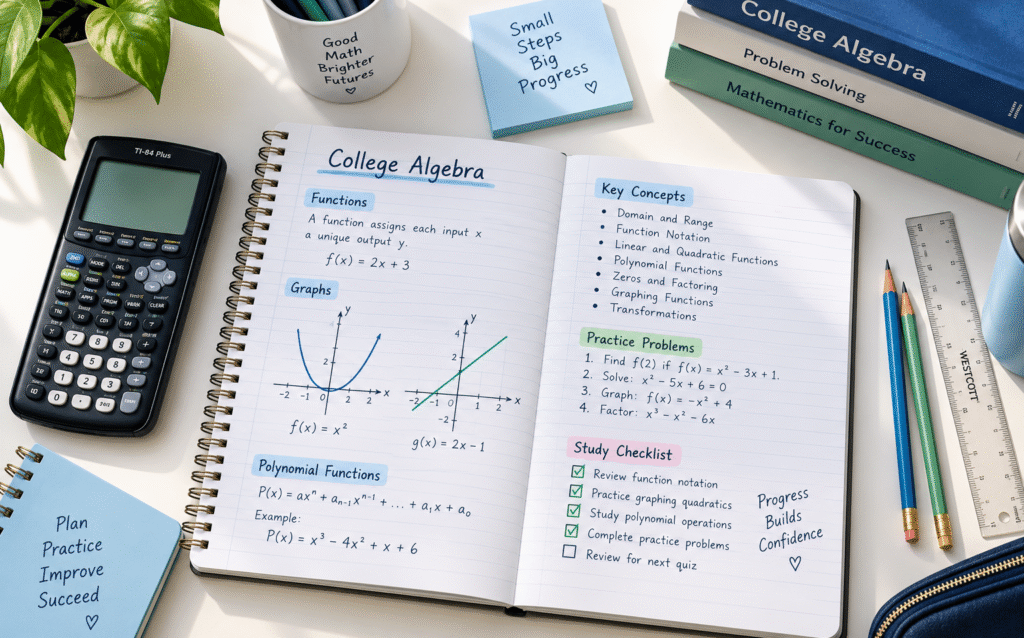 Good
Math
Brighter
Futures
♡
Small
Steps
Big
Progress ♡
College Algebra
Problem Solving
Mathematics for Success
TI-84 Plus
College Algebra
Functions
A function assigns each input x
a unique output y.
f(x) = 2x + 3
Graphs
y
2
-2 -1 0 1 2 x
f(x) = x²
y
4
2
-2 -1 0 1 2 x
-2
g(x) = 2x - 1
Polynomial Functions
P(x) = axⁿ + aₙ₋₁xⁿ⁻¹ + ... + a₁x + a₀
Example:
P(x) = x³ - 4x² + x + 6
Key Concepts
• Domain and Range
• Function Notation
• Linear and Quadratic Functions
• Polynomial Functions
• Zeros and Factoring
• Graphing Functions
• Transformations
Practice Problems
1. Find f(2) if f(x) = x² - 3x + 1.
2. Solve: x² - 5x + 6 = 0
3. Graph: f(x) = -x² + 4
4. Factor: x³ - x² - 6x
Study Checklist
☑ Review function notation
☑ Practice graphing quadratics
☑ Study polynomial operations
☑ Complete practice problems
☐ Review for next quiz
Progress
Builds
Confidence
♡
WESTCOTT
Plan
Practice
Improve
Succeed
♡